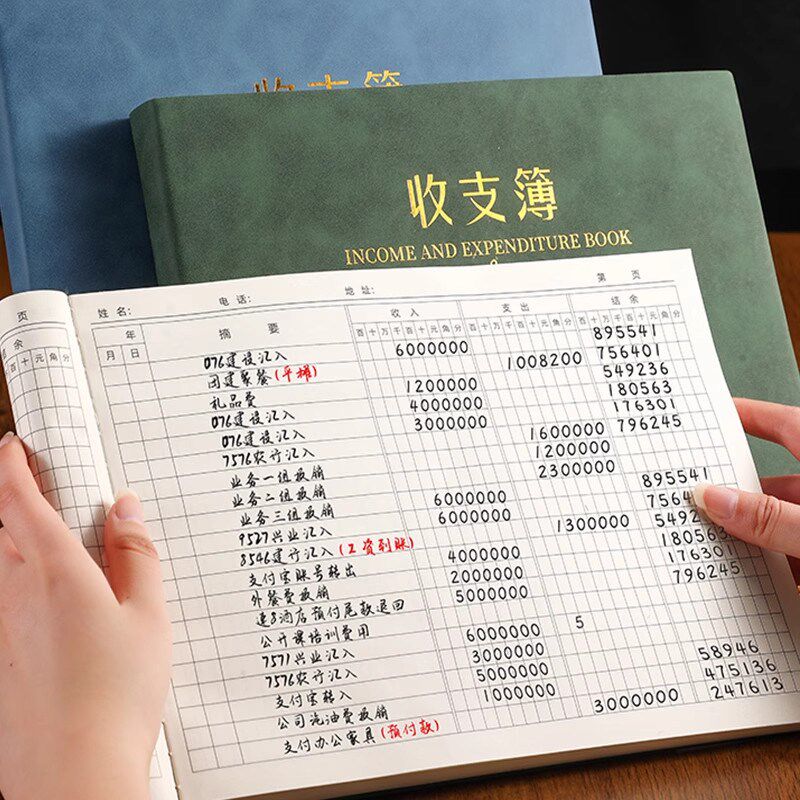 收支簿
收支簿
INCOME AND EXPENDITURE BOOK
页
结余
百十元角分
姓名: 电话: 地址: 第 页
年 摘 要 收入 支出 结余
月 日 百十万千百十元角分 百十万千百十元角分 百十万千百十元角分
076建设汇入 6000000 895541
团建聚餐(平摊) 1008200 756401
礼品费 1200000 549236
076建设汇入 4000000 180563
076建设汇入 3000000 176301
7576农行汇入 1600000 796245
业务一组报销 1200000
业务二组报销 2300000
业务三组报销 6000000 895541
9527兴业汇入 6000000 7564
8546建行汇入(工资到账) 1300000 549
支付宝账号转出 4000000 180563
外餐费报销 2000000 176301
速8酒店预付尾款退回 5000000 796245
公开课培训费用 5
7571兴业汇入 6000000
7576农行汇入 3000000
支付宝转入 5000000 58946
公司汽油费报销 1000000 475136
支付办公家具(预付款) 3000000 247613